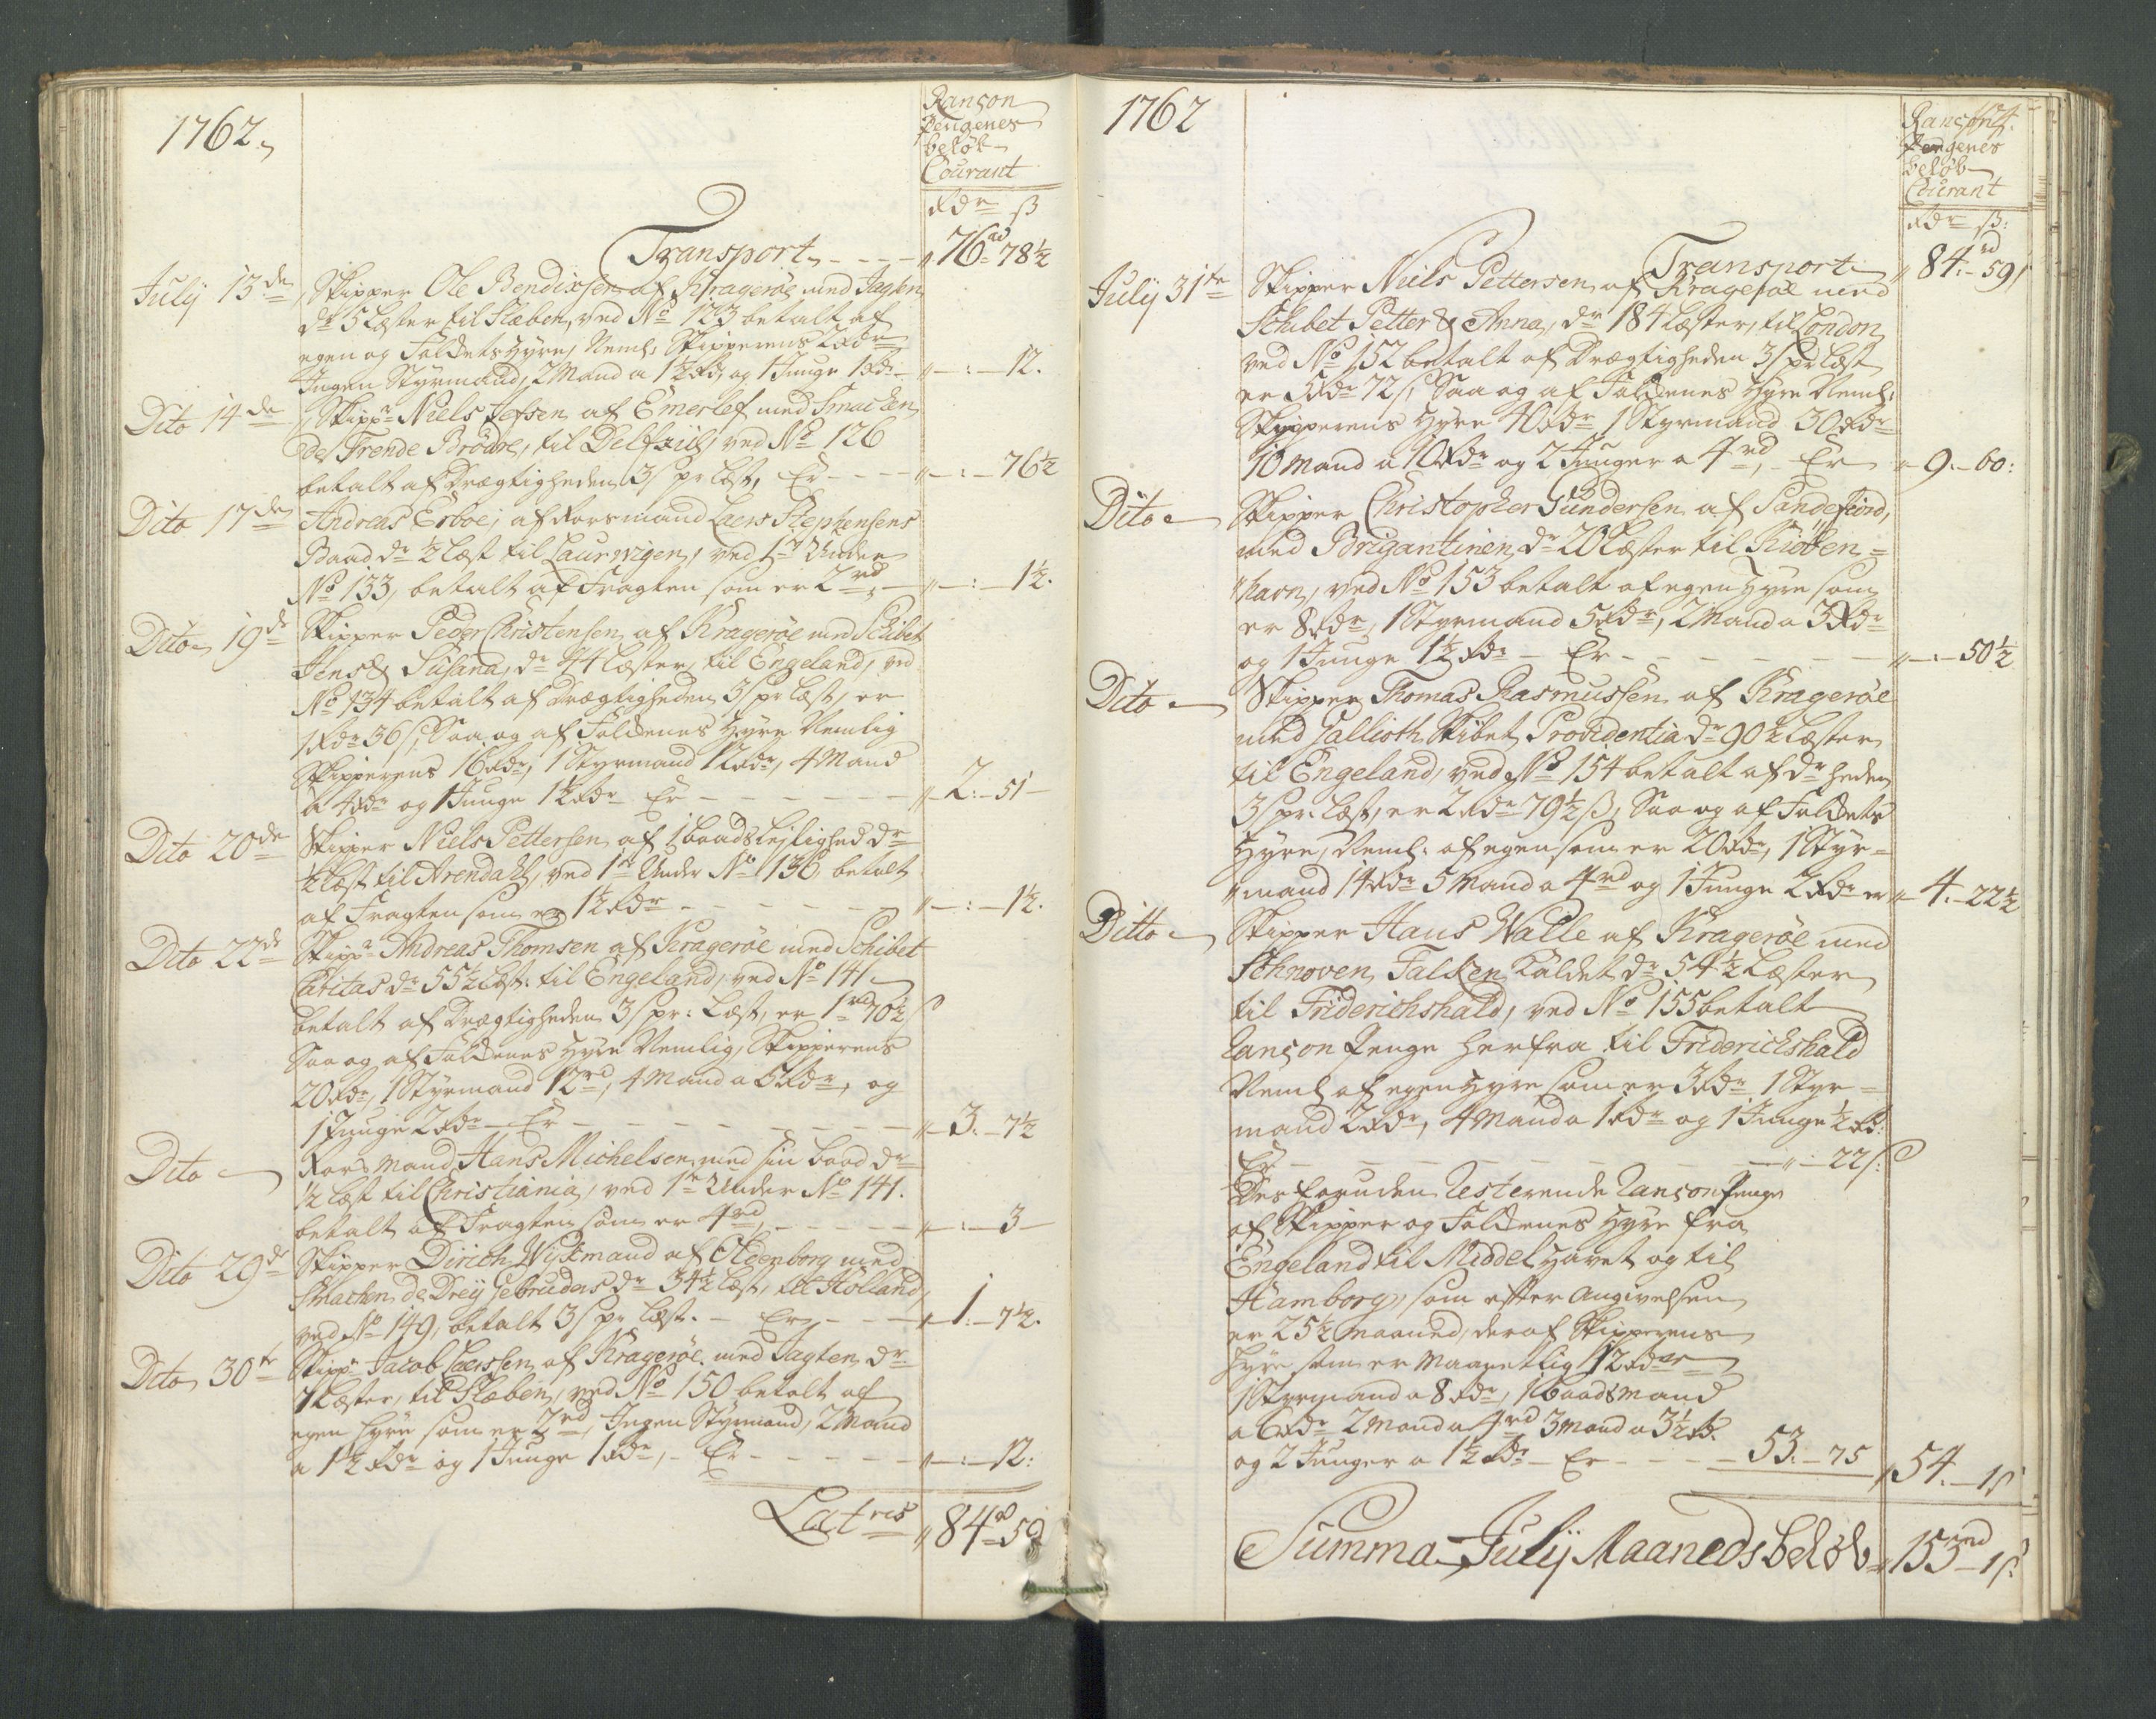 1762.
Rançon
Pengenes
beløb
Courant
Rdr ß
Transport - - - - 76rd 78½
July 13de Skipper Ole Bendixsen af Kragerøe med Jagten
dr 5 Læster til Sleben, ved No 123 betalt af
egen og Folkets Hyre, Neml. Skipperens 2 Rdr
Ingen Styrmand, 2 Mand a 1½ Rdr og 1 Junge 1 Rdr - „ - : - 12.
Dito 14de Skippr Niels Jefsen af Emerlef med Smacken
de Frende Brödre, til Delfziil, ved No 126
betalt af Drægtigheden 3 s pr Læst, Er - - - „ - : - 76½
Dito 17de Andreas Erboe, af Rorsmand Laers Stephensens
Baad dr ½ Læst til Laurwigen, ved 1te Under
No 133, betalt af Fragten som er 2rd, - „ - : - 1½.
Dito 19de Skipper Peder Christensen af Kragerøe med Schibet
Jens & Susana, dr 44 Læster, til Engeland, ved
No 134 betalt af Drægtigheden 3 s pr Læst, er
1 Rdr 36 s, Saa og af Folckenes Hyre Nemlig
Skipperens 16 Rdr, 1 Styrmand 12 Rdr, 4 Mand
a 4 Rdr og 1 Junge 1½ Rdr Er - - - - - „ - 2. - 51 -
Dito 20de Skipper Niels Pettersen af 1 baads lejlighed dr
½ Læst til Arendahl, ved 1te Under No 136 betalt
af Fragten som er 1½ Rdr - - - - - - „ - : - 1½.
Dito 22de Skippr Andreas Thomsen af Kragerøe med Schibet
Caritas dr 55½ Læst: til Engeland, ved No 141
betalt af Drægtigheden 3 s pr: Læst, er 1rd 70½ s
Saa og af Folckenes Hyre Nemlig, Skipperens
20 Rdr, 1 Styrmand 12rd, 4 Mand a 5 Rdr, og
1 Junge 2 Rdr - Er - - - - - - - - „ - 3. - 7½
Dito - Rors Mand Hans Michelsen med sin baad dr
½ Læst til Christiania, ved 1te Under No 141.
betalt af Fragten som er 4rd, - - - - - „ - : - 3 -
Dito 29de Skipper Dirich Wickmand af Oldenborg med
Smacken de Drey Gebruders dr 34½ Læst, til Holland,
ved No 149, betalt 3 s pr Læst. - Er - - - - 1. - 7½.
Dito 30te Skippr Jacob Laerssen af Kragerøe med Jagten dr
7 Læster, til Sleben, ved No 150 betalt af
egen Hyre som er 2rd, Ingen Styrmand, 2 Mand
a 1½ Rdr og 1 Junge 1 Rdr, - Er - - - - - „ - : - 12:
Latris „ 84rd 59
1762
Rançon
Pengenes
beløb
Courant
Rdr ß:
Transport „ 84.rd - 59 s
July 31te Skipper Niels Pettersen af Kragerøe med
Schibet Petter & Anna, dr 184 Læster, til London
ved No 152 betalt af Drægtigheden 3 s pr Læst
er 5 Rdr 72 s, Saa og af Folckenes Hyre Neml:
Skipperens Hyre 40 Rdr 1 Styrmand 30 Rdr
10 Mand a 10 Rdr og 2 Junger a 4rd, - Er „ - 9. - 60:
Dito - Skipper Christopher Gundersen af Sandefiord,
med Brigantinen dr 20 Læster til Kiøben=
„havn, ved No 153 betalt af egen Hyre som
er 8 Rdr, 1 Styrmand 5 Rdr, 2 Mand a 3 Rdr
og 1 Junge 1½ Rdr - Er - - - - - - - „ - : - 50½
Dito - Skipper Thomas Rasmussen af Kragerøe
med Gallioth Skibet Providentia dr 90½ Læster
til Engeland, ved No 154 betalt af dr heden
3 s pr. Læst, er 2 Rdr 79½ ß, Saa og af Folckets
Hyre, Neml: af egen som er 20 Rdr, 1 Styr=
„mand 14 Rdr 5 Mand a 4rd og 1 Junge 2 Rdr er „ - 4. - 22½
Ditto - Skipper Hans Walle af Kragerøe med
Schnoven Falken kaldet dr 54½ Læster
til Friderichshald, ved No 155 betalt
Rançon Penge herfra til Friderichshald
Neml af egen Hyre som er 3 Rdr 1 Styr=
mand 2 Rdr, 4 Mand a 1 Rdr og 1 Junge ½ Rd:
Er - - - - - - - - - - „ - 22 s:
Desforuden resterende Rançon Penge
af Skipper og Folckenes Hyre fra
Engeland til Middel Havet og til
Hamborg, som efter Angivelsen
er 25½ Maaned, deraf Skipperens
Hyre som er Maanetlig 12 Rdr
1 Styrmand a 8 Rdr, 1 Baadsmand
a 6 Rdr 2 Mand a 4rd 3 Mand a 3½ Rd.
og 2 Junger a 1½ Rdr - Er - - - - 53. - 75 „ 54. - 1 s
Summa July Maaneds beløb „ 153rd - 1 s.